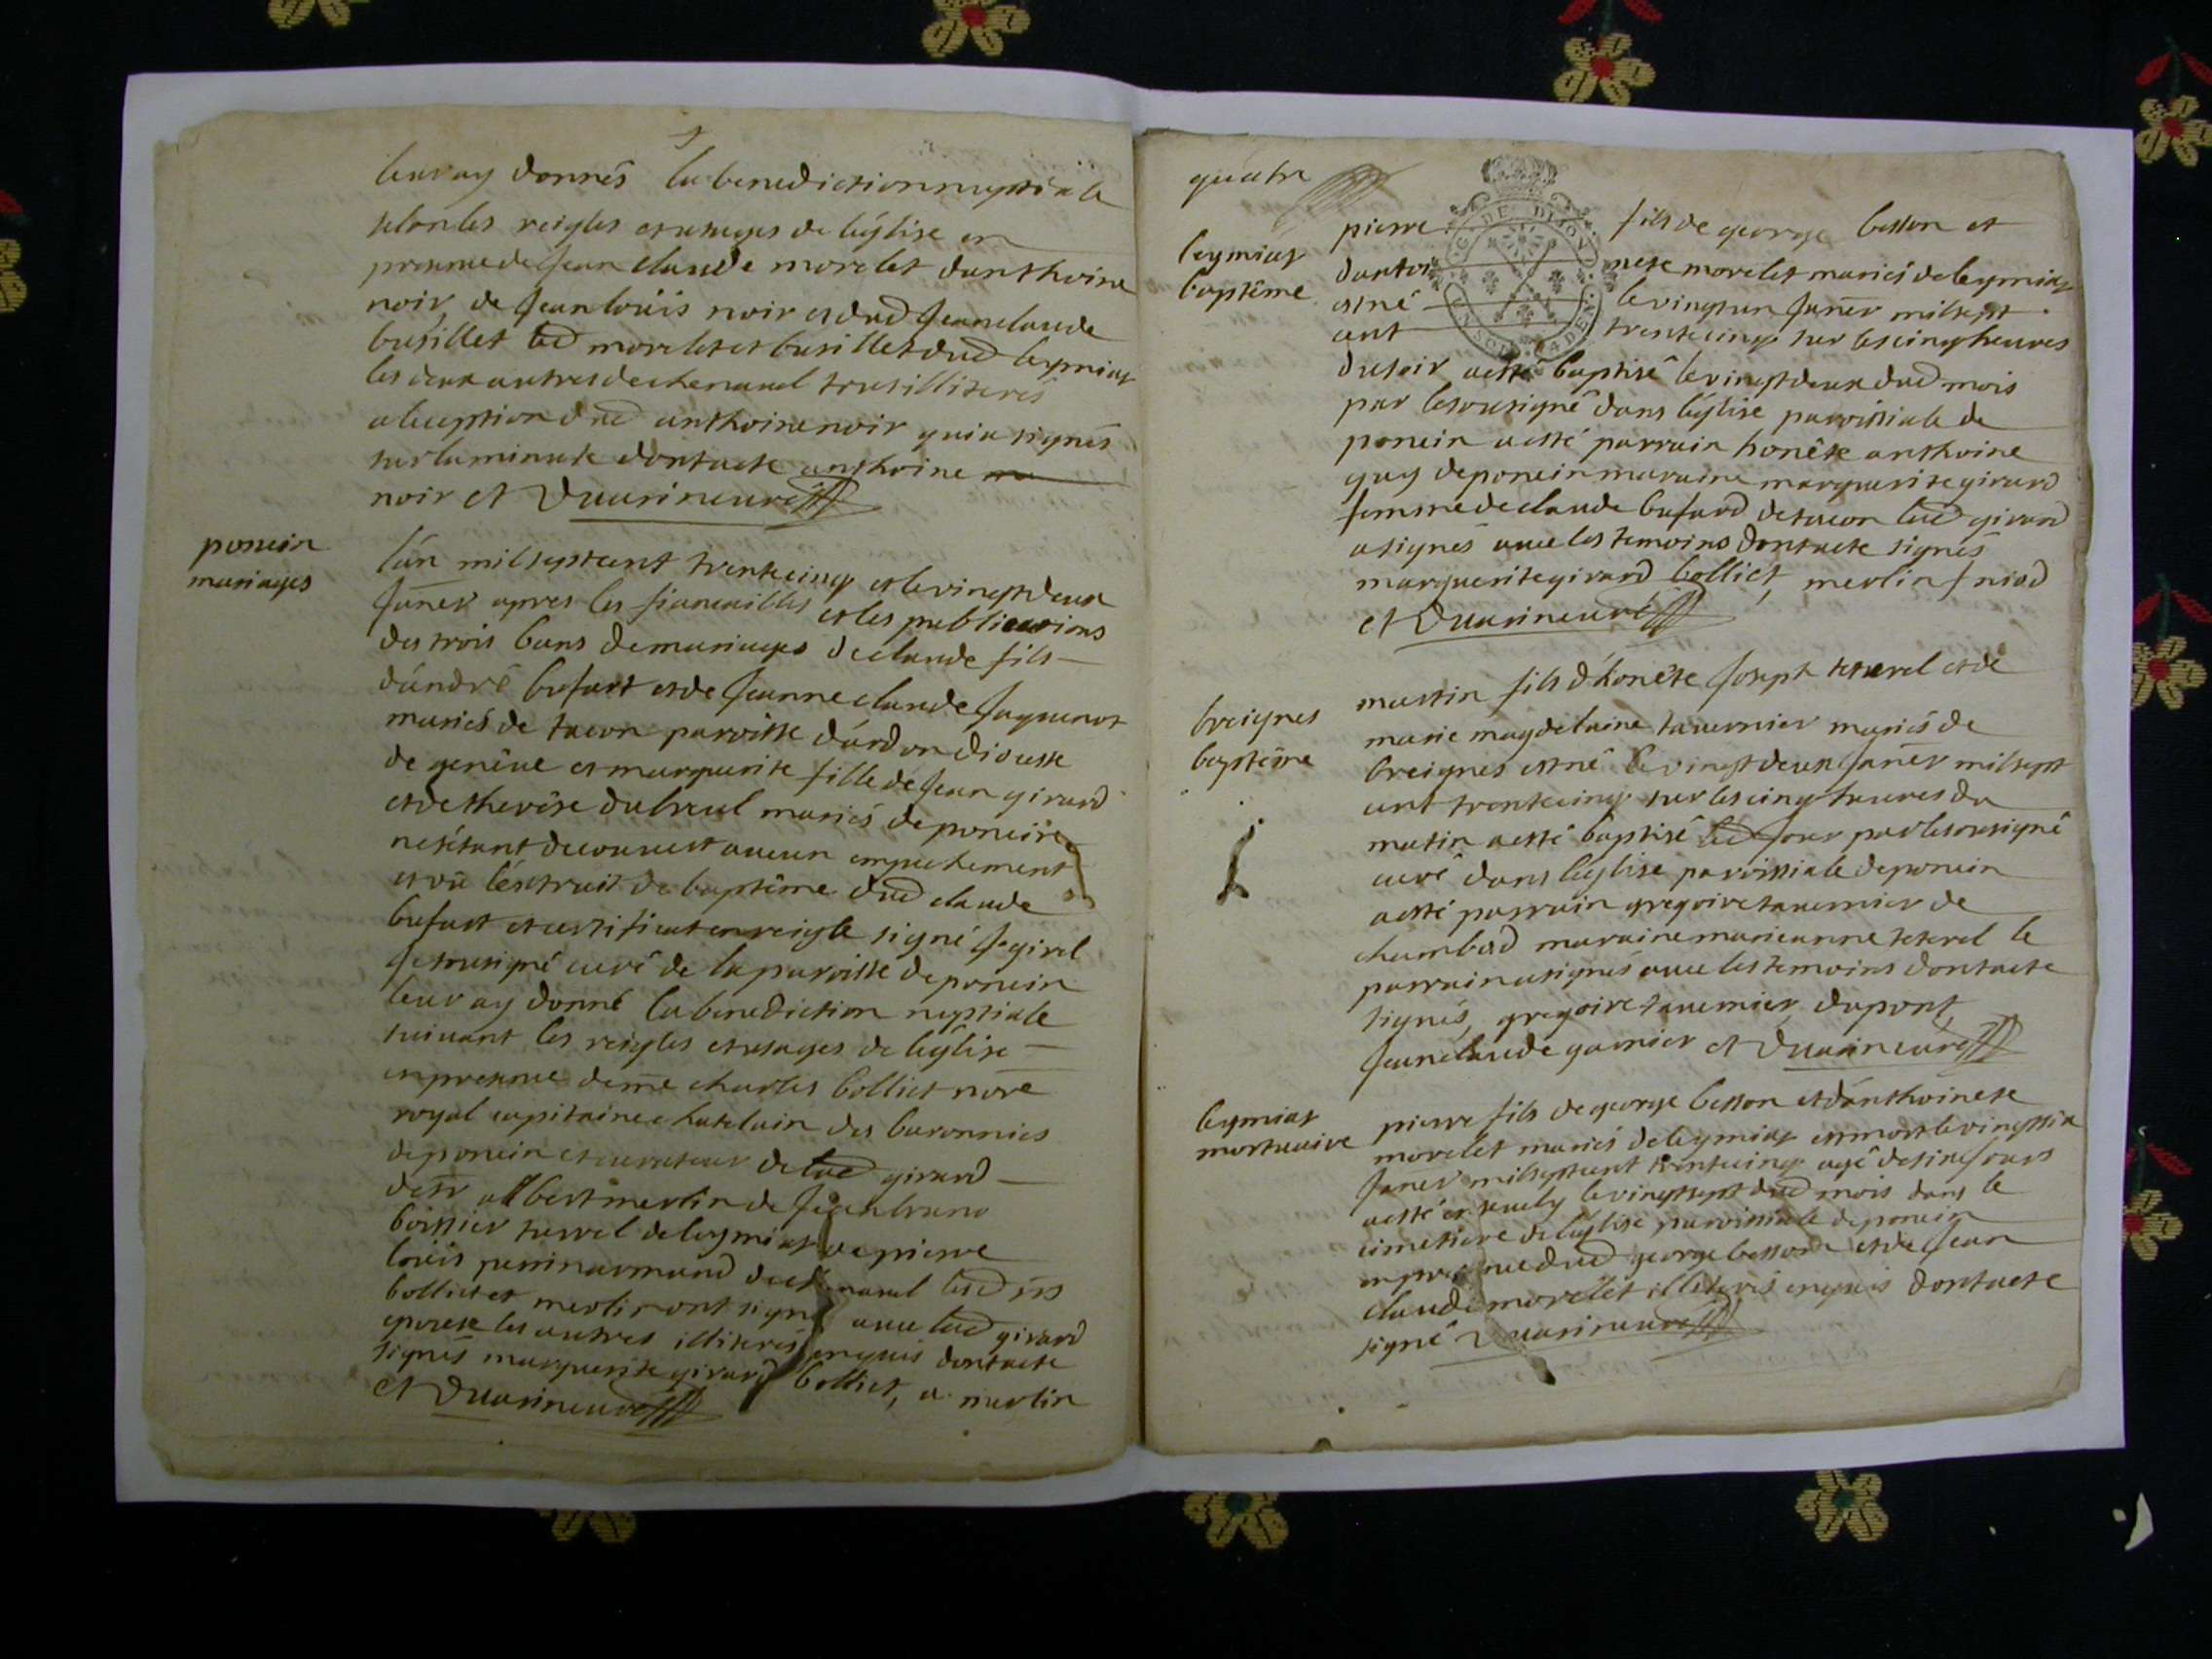 leur ay donnés la benediction nuptiale
selon les reigles et usages de léglise en
presence de Jean claude morelet danthoine
noir, de Jean loüis noir et dud Jean claude
busillet led morelet et busillet dud leymiat
les deux autres de chenavel tous illiterés
a lexeption dud anthoine noir qui a signés
sur la minute dont acte anthoine
noir et Duarineuré
poncin
mariages
lán mil sept cent trente cinq et le vingt deux
Janer apres les fiancailles et les publications
des trois bans de mariages de claude fils
dándré bufart et de Jeanne claude Juquenot
mariés de tacon paroisse dárdon diocesse
de genêve et marguerite fille de Jean girard
et de therêse dubreul mariés de poncin
nesétant decouvert aucun empechement
et vû léxtrait de baptême dud claude
bufart et certificat en reigle signé Jogirel
Je sousigné curé de la paroisse de poncin
leur ay donné la benediction nuptiale
suivant les reigles et usages de léglise
en presence de me charles bolliet nore
royal capitaine chatelain des baronnies
de poncin et curateur de lad girard
de sr albert merlin de Jean bruno
boissier turrel de leymiat de pierre
loüis perrin armand de chenavel lesd srs
bolliet et merlin ont signé avec lad girard
epouse les autres illiterés enquis dont acte
signés marguerite girard bolliet, a. merlin
et Duarineuré
quatre
leymiat
baptême
G. DE DIJON
pierre fils de george besson et
dantoinete morelet mariés de leymiat
est né le vingt un Janer mil sept
cent trente cinq sur les cinq heures
du soir a esté baptisé le vingt deux dud mois
par le sousigné dans léglise paroissiale de
poncin a esté parrain honête anthoine
guy de poncin maraine marguerite girard
femme de claude bufard de tacon lad girard
a signés avec les temoins dont acte signés
marguerite girard bolliet, merlin f niod
et Duarineuré
breignes
baptême
martin fils d'honête Joseph teterel et de
marie magdelaine tavernier mariés de
breignes est né le vingt deux Janer mil sept
cent trente cinq sur les cinq heures du
matin a esté baptisé led Jour par le sousigné
curé dans léglise paroissiale de poncin
a esté parrain gregoire tavernier de
chambod maraine marie anne teterel le
parrain a signés avec les temoins dont acte
signés, gregoire tavernier, dupont,
Jean claude garnier et Duarineuré
leymiat
mortuaire
pierre fils de george besson et dánthoinete
morelet mariés de leymiat est mort le vingt six
Janer mil sept cent trente cinq agé de six Jours
a esté ensevely le vingt sept dud mois dans le
cimetiere de léglise paroissiale de poncin
en presence dud george besson et de Jean
claude morelet illiterés enquis dont acte
signé Duarineuré